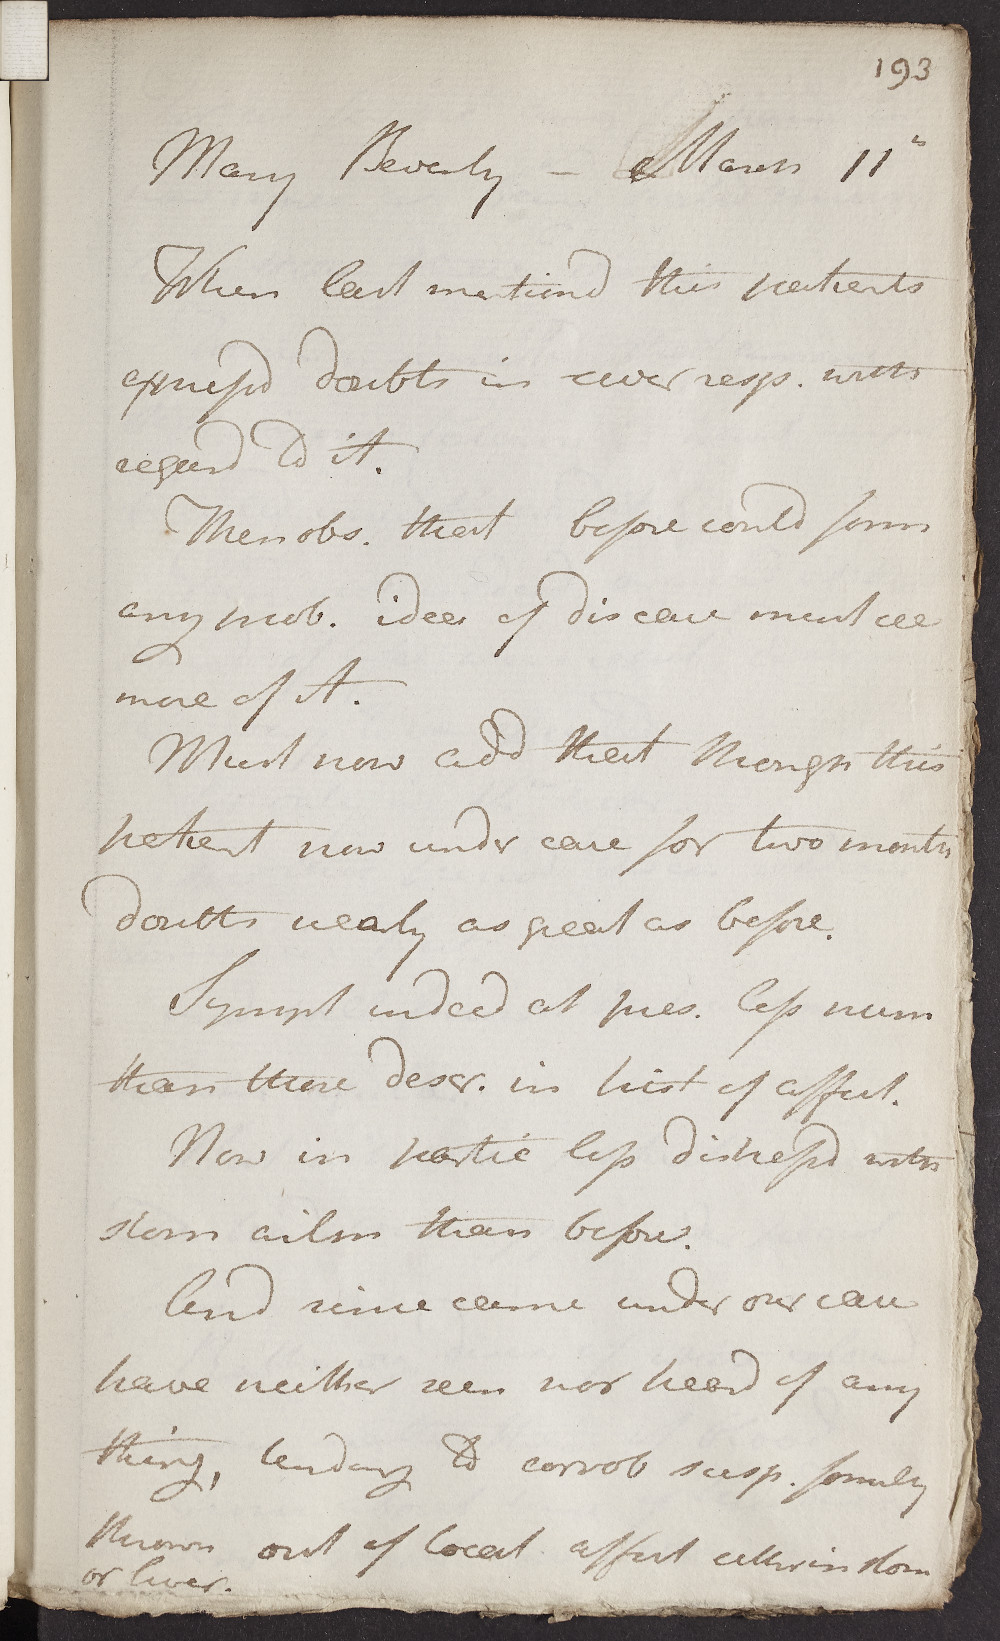 193
Mary Beverly – March 11th
When last mentiond this patients
expressd doubts in sever resp. with
regard to it.
Then obs. that before could form
any prob. idea of disease must see
more of it.
Must now add that though this
patient now under care for two months
doubts nearly as great as before.
Sympt indeed at pres. less num
than those descr. in hist of affect.
Now in partic less distressd with
stom ailm than before.
And since came under our care
have neither seen nor heard of any
thing, tending to corrob susp. formerly
thrown out of local affect either in stom
or liver.